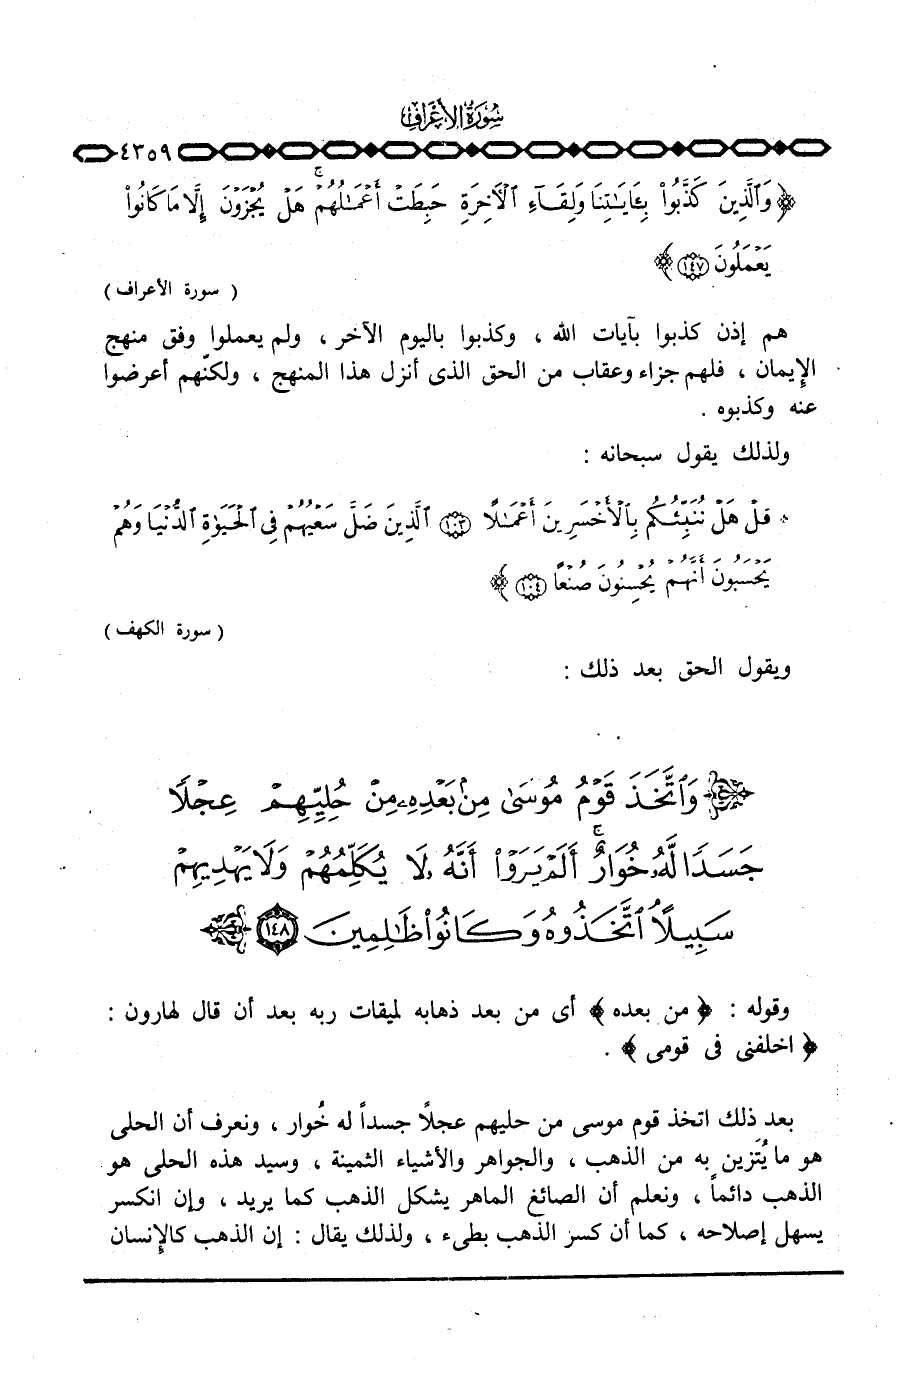 سُورَةُ الأَعْرَافِ
٤٣٥٩
﴿ وَٱلَّذِينَ كَذَّبُوا۟ بِـَٔايَـٰتِنَا وَلِقَآءِ ٱلْـَٔاخِرَةِ حَبِطَتْ أَعْمَـٰلُهُمْ ۚ هَلْ يُجْزَوْنَ إِلَّا مَا كَانُوا۟
يَعْمَلُونَ ١٤٧ ﴾
( سورة الأعراف )
هم إذن كذبوا بآيات الله ، وكذبوا باليوم الآخر ، ولم يعملوا وفق منهج
الإيمان ، فلهم جزاء وعقاب من الحق الذى أنزل هذا المنهج ، ولكنّهم أعرضوا
عنه وكذبوه .
ولذلك يقول سبحانه :
قُلْ هَلْ نُنَبِّئُكُم بِٱلْأَخْسَرِينَ أَعْمَـٰلًا ١٠٣ ٱلَّذِينَ ضَلَّ سَعْيُهُمْ فِى ٱلْحَيَوٰةِ ٱلدُّنْيَا وَهُمْ
يَحْسَبُونَ أَنَّهُمْ يُحْسِنُونَ صُنْعًا ١٠٤ ﴾
( سورة الكهف )
ويقول الحق بعد ذلك :
وَٱتَّخَذَ قَوْمُ مُوسَىٰ مِنۢ بَعْدِهِۦ مِنْ حُلِيِّهِمْ عِجْلًا
جَسَدًا لَّهُۥ خُوَارٌ ۚ أَلَمْ يَرَوْا۟ أَنَّهُۥ لَا يُكَلِّمُهُمْ وَلَا يَهْدِيهِمْ
سَبِيلًا ٱتَّخَذُوهُ وَكَانُوا۟ ظَـٰلِمِينَ ١٤٨
وقوله : ﴿ من بعده ﴾ أى من بعد ذهابه لميقات ربه بعد أن قال لهارون :
﴿ اخلفنى فى قومى ﴾ .
بعد ذلك اتخذ قوم موسى من حليهم عجلاً جسداً له خُوار ، ونعرف أن الحلى
هو ما يُتَزين به من الذهب ، والجواهر والأشياء الثمينة ، وسيد هذه الحلى هو
الذهب دائماً ، ونعلم أن الصائغ الماهر يشكل الذهب كما يريد ، وإن انكسر
يسهل إصلاحه ، كما أن كسر الذهب بطىء ، ولذلك يقال : إن الذهب كالإنسان